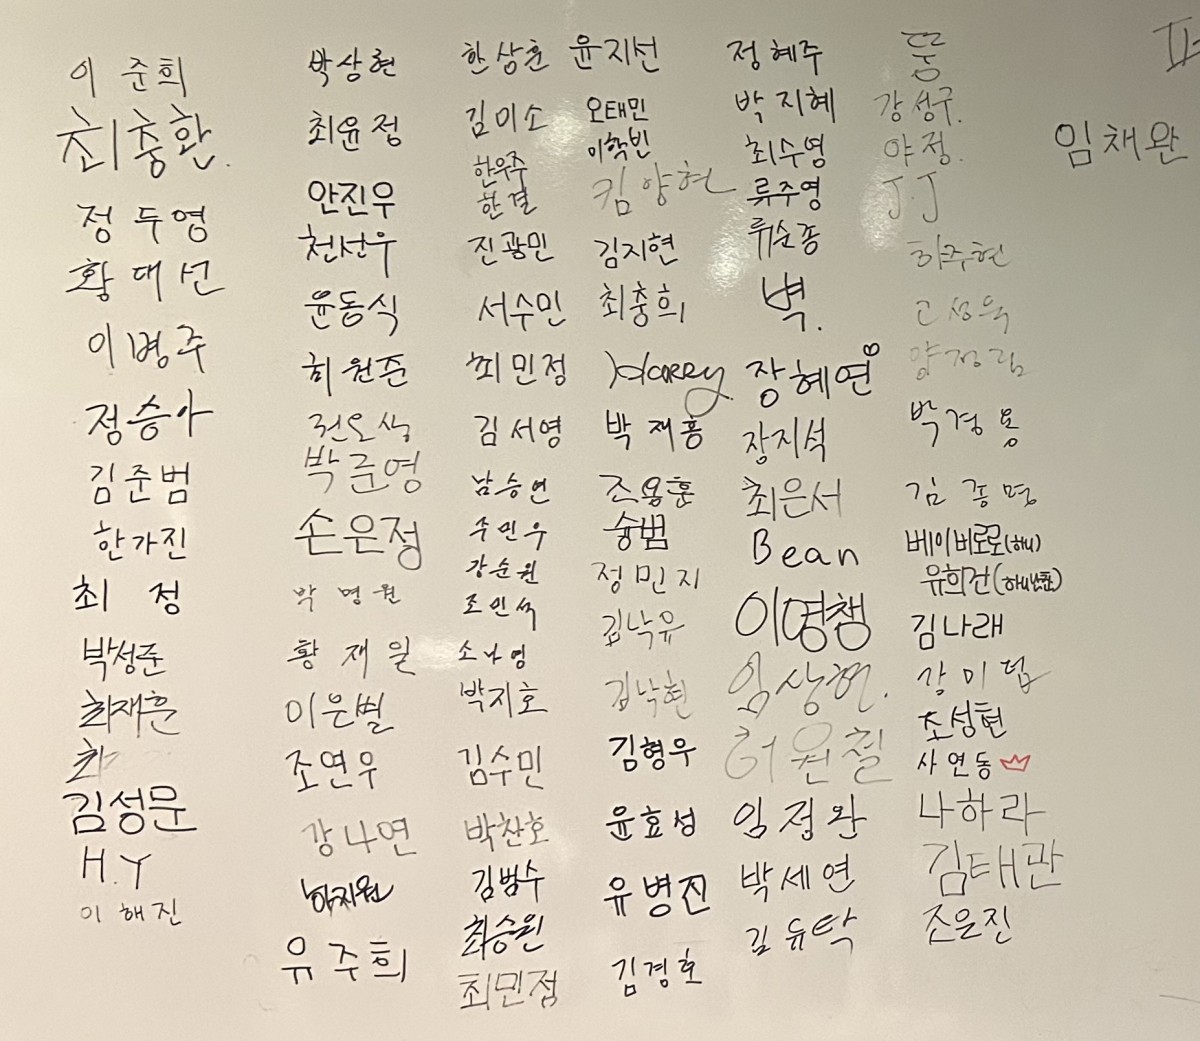 이 준희
최충환.
정 두영
황 대선
이병주
정승아
김준범
한가진
최 정
박성준
최재훈
최
김성문
H.Y
이 해진
박상현
최윤정
안진우
천선우
윤동식
허원준
박준영
손은정
박 명원
황 재일
이은별
조연우
강나연
유주희
한상훈
김미소
한우주
한결
진광민
서수민
최민정
김서영
남승연
주민우
강순원
조민석
소나영
박지호
김수민
박찬호
김범수
최승원
최민정
윤지선
오태민
이학빈
김양현
김지현
최충희
Harry
박재홍
조용훈
숭범
정민지
김낙유
김낙현
김형우
윤효성
유병진
김경호
정혜주
박지혜
최수영
류주영
류순종
벽.
장혜연
장지석
최은서
Bean
이영챔
임상현.
허원칠
임정완
박세연
김듀탁
뭄
강성구.
야정.
J.J
허주현
고성욱
양정림
박경용
김종명
베이비로로(하니)
김나래
강미덥
조성현
사연동
나하라
김태만
조은진
임채완